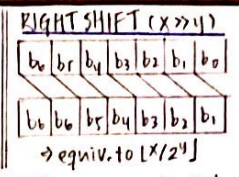 RIGHT SHIFT (x>>y)
b6 b5 b4 b3 b2 b1 b0
b6 b6 b5 b4 b3 b2 b1
→ equiv. to ⌊x/2^y⌋